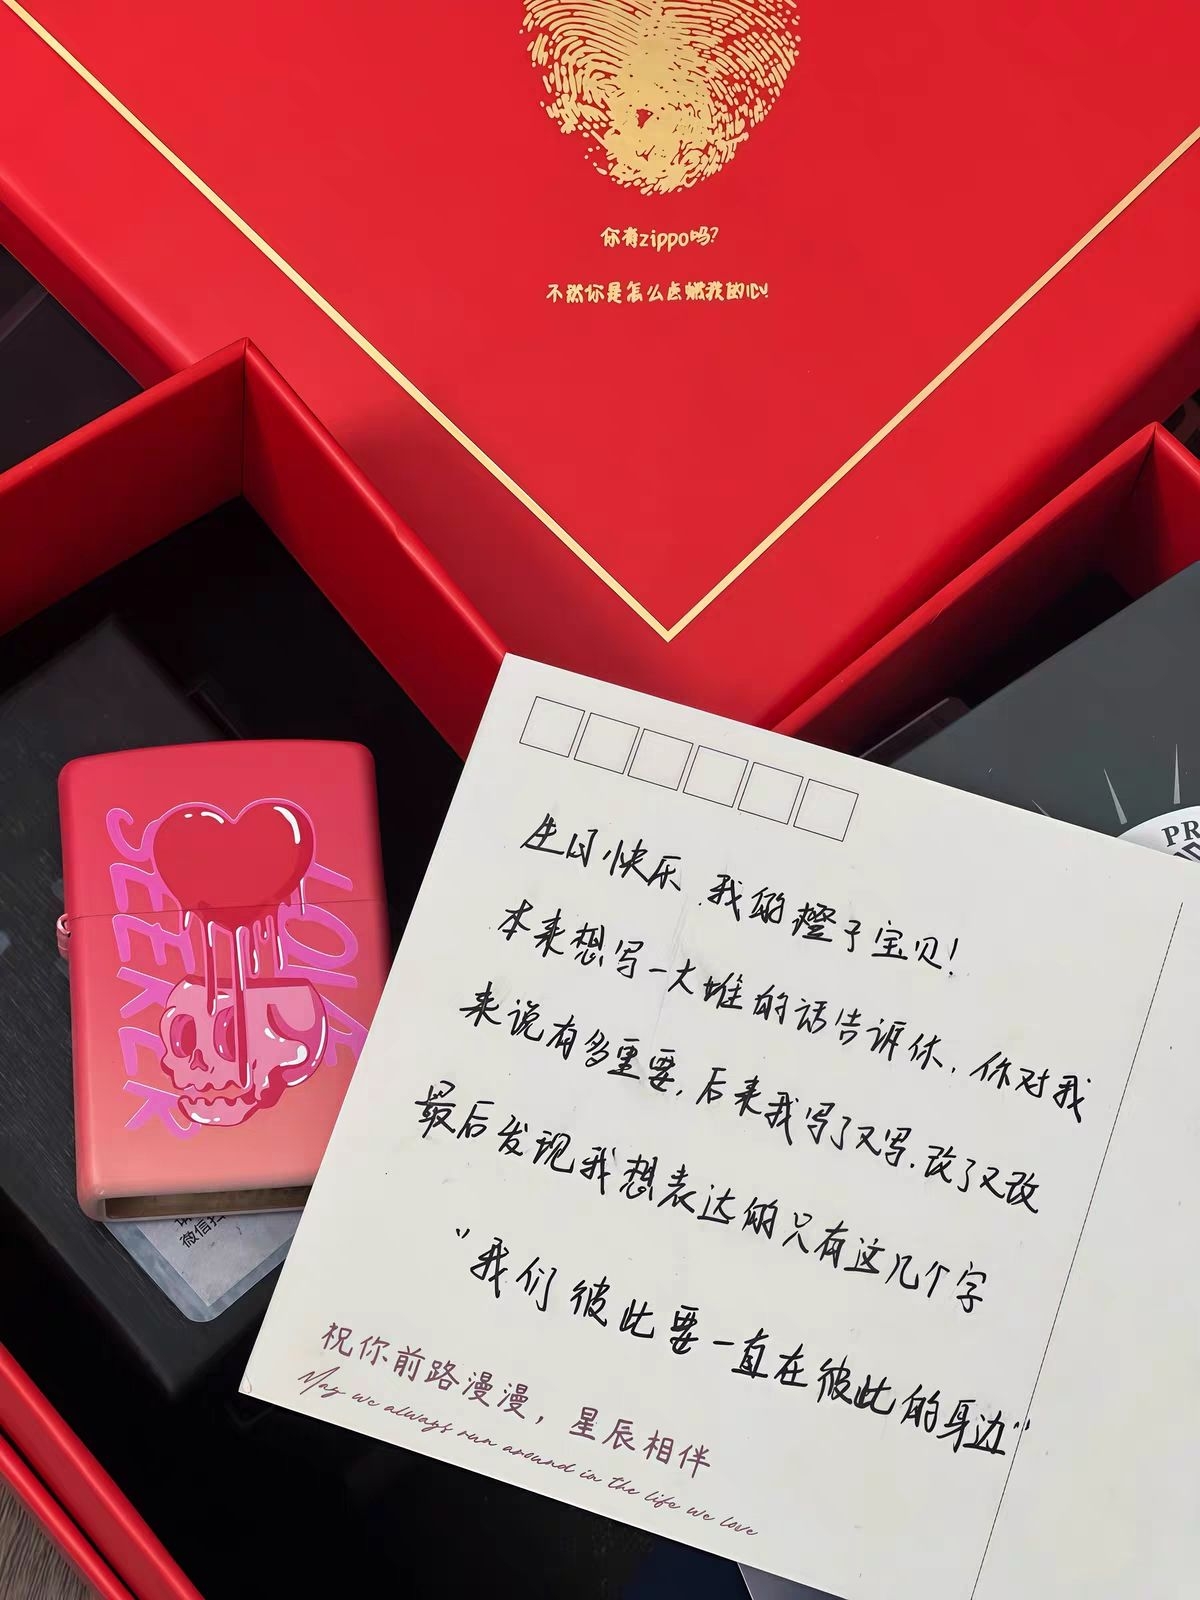 你有zippo吗?
不然你是怎么点燃我的心!
SEEKER
LOVE
PR
微信扫
生日快乐,我的橙子宝贝!
本来想写一大堆的话告诉你,你对我
来说有多重要,后来我写了又写,改了又改
最后发现我想表达的只有这几个字
"我们彼此要一直在彼此的身边"
祝你前路漫漫，星辰相伴
May we always run around in the life we love